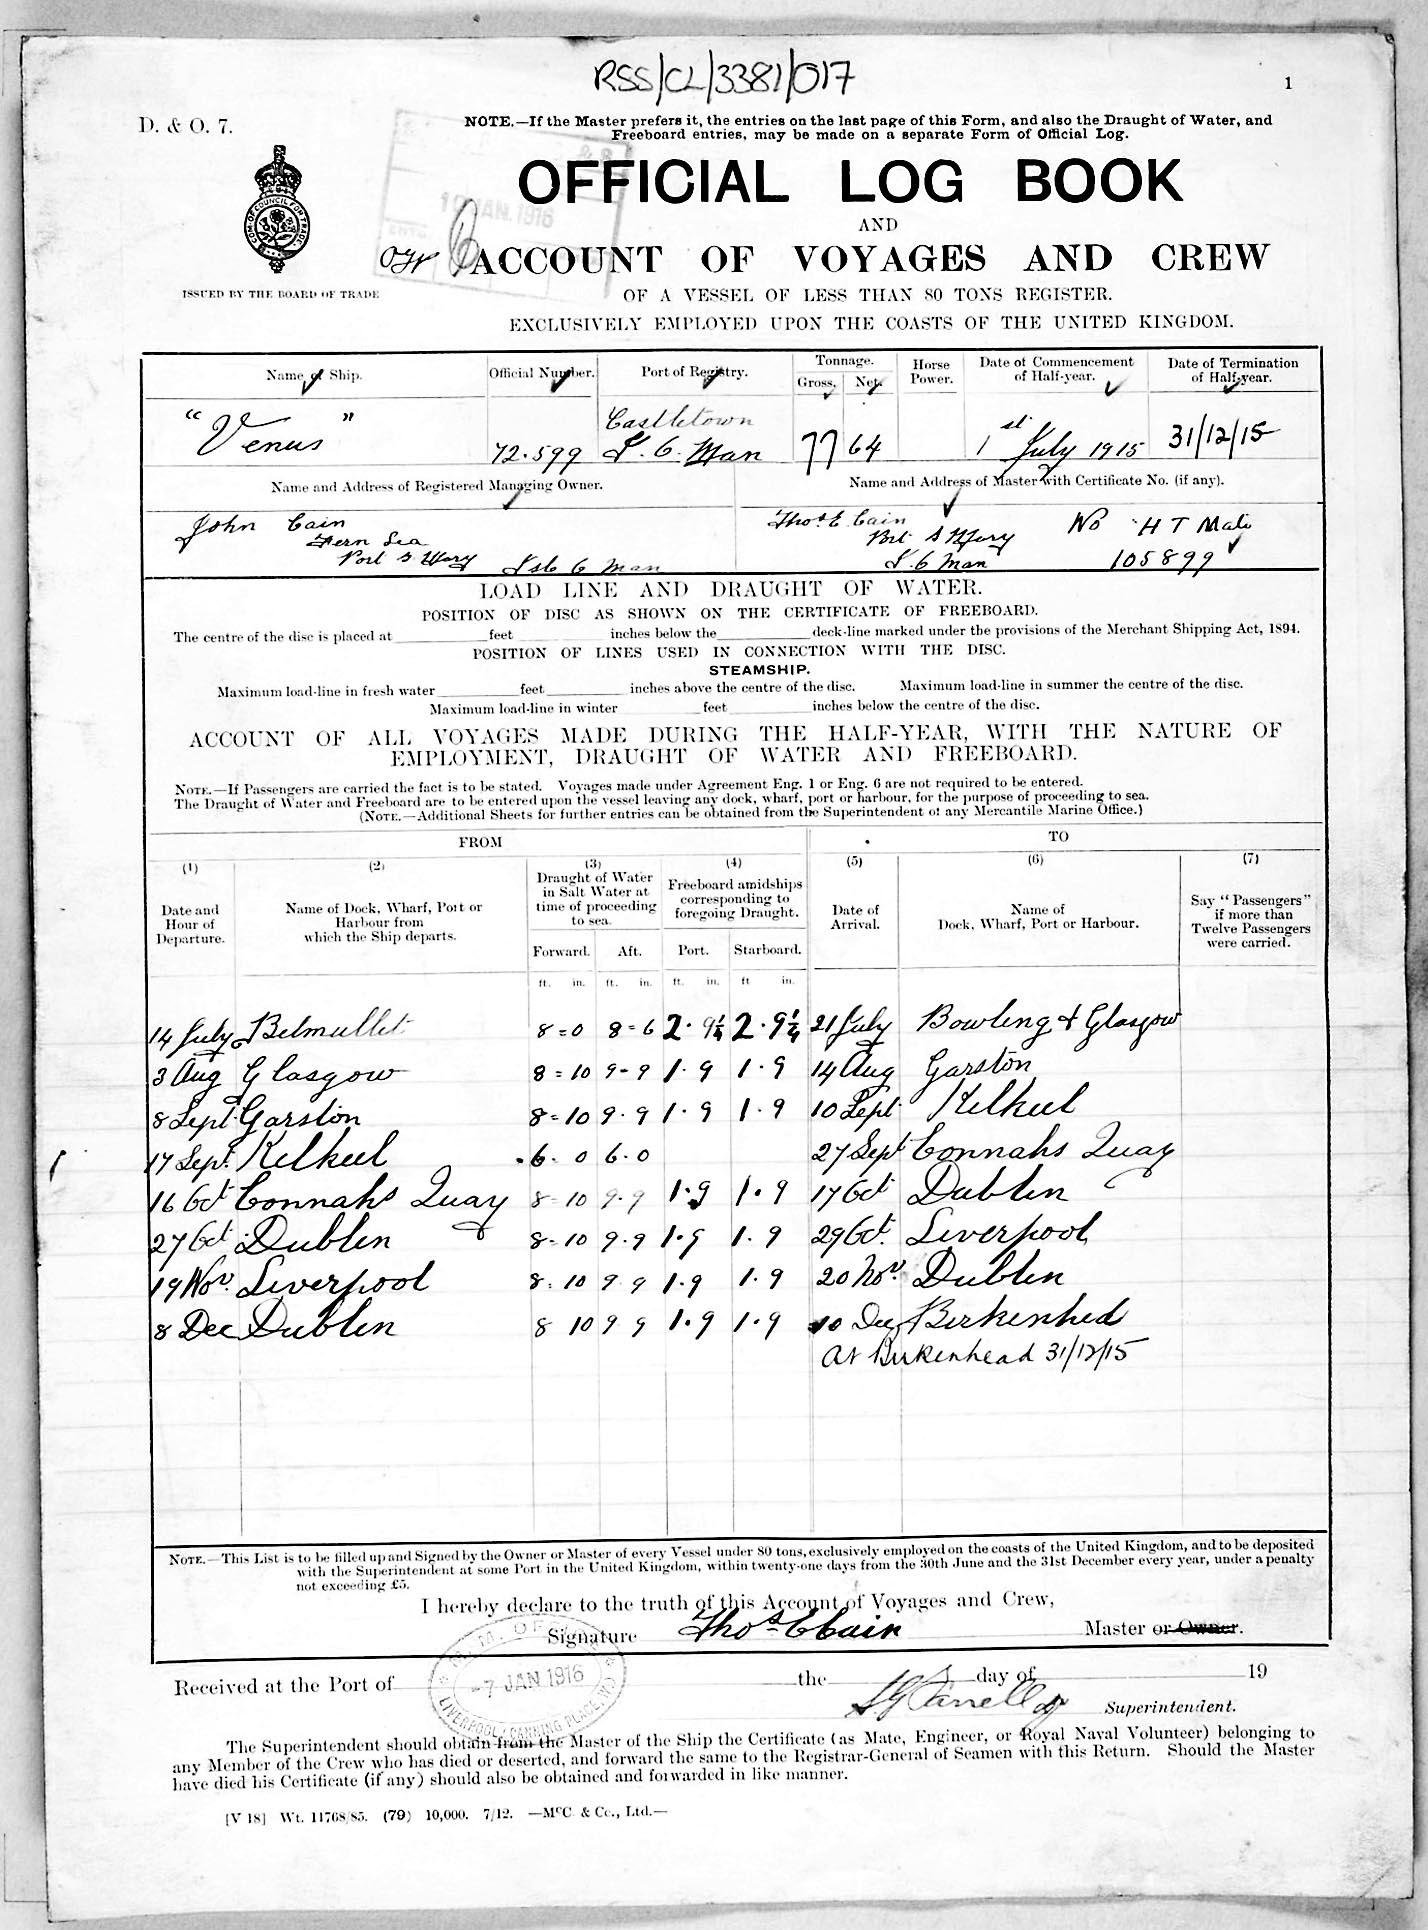 RSS/CL/3381/017
1
D. & O. 7.
NOTE.—If the Master prefers it, the entries on the last page of this Form, and also the Draught of Water, and
Freeboard entries, may be made on a separate Form of Official Log.
OFFICIAL LOG BOOK
10 JAN. 1916
AND
ACCOUNT OF VOYAGES AND CREW
COM. OF COUNCIL FOR TRADE
ISSUED BY THE BOARD OF TRADE
OF A VESSEL OF LESS THAN 80 TONS REGISTER.
EXCLUSIVELY EMPLOYED UPON THE COASTS OF THE UNITED KINGDOM.
Name of Ship. Official Number. Port of Registry. Tonnage. Gross. Net. Horse Power. Date of Commencement of Half-year. Date of Termination of Half-year.
"Venus" 72.599 Castletown I. O. Man 77 64 1st July 1915 31/12/15
Name and Address of Registered Managing Owner. Name and Address of Master with Certificate No. (if any).
John Cain Thos E Cain No H T Mate
Fern Lea Port S Mary
Port S Mary Isle O Man I. O Man 105899
LOAD LINE AND DRAUGHT OF WATER.
POSITION OF DISC AS SHOWN ON THE CERTIFICATE OF FREEBOARD.
The centre of the disc is placed at feet inches below the deck-line marked under the provisions of the Merchant Shipping Act, 1894.
POSITION OF LINES USED IN CONNECTION WITH THE DISC.
STEAMSHIP.
Maximum load-line in fresh water feet inches above the centre of the disc. Maximum load-line in summer the centre of the disc.
Maximum load-line in winter feet inches below the centre of the disc.
ACCOUNT OF ALL VOYAGES MADE DURING THE HALF-YEAR, WITH THE NATURE OF
EMPLOYMENT, DRAUGHT OF WATER AND FREEBOARD.
NOTE.—If Passengers are carried the fact is to be stated. Voyages made under Agreement Eng. 1 or Eng. 6 are not required to be entered.
The Draught of Water and Freeboard are to be entered upon the vessel leaving any dock, wharf, port or harbour, for the purpose of proceeding to sea.
(NOTE.—Additional Sheets for further entries can be obtained from the Superintendent of any Mercantile Marine Office.)
FROM TO
(1) (2) (3) (4) (5) (6) (7)
Date and Hour of Departure. Name of Dock, Wharf, Port or Harbour from which the Ship departs. Draught of Water in Salt Water at time of proceeding to sea. Freeboard amidships corresponding to foregoing Draught. Date of Arrival. Name of Dock, Wharf, Port or Harbour. Say "Passengers" if more than Twelve Passengers were carried.
Forward. Aft. Port. Starboard.
ft. in. ft. in. ft. in. ft in.
14 July Belmullet 8=0 8=6 2.9¼ 2.9¼ 21 July Bowling & Glasgow
3 Aug Glasgow 8=10 9-9 1.9 1.9 14 Aug Garston
8 Sept Garston 8=10 9.9 1.9 1.9 10 Sept Kilkeel
17 Sept. Kilkeel 6. 0 6.0 27 Sept Connahs Quay
16 Oct Connahs Quay 8-10 9.9 1.9 1.9 17 Oct Dublin
27 Oct Dublin 8-10 9.9 1.9 1.9 29 Oct. Liverpool
19 Nov Liverpool 8.10 9 9 1.9 1.9 20 Nov. Dublin
8 Dec Dublin 8 10 9 9 1.9 1.9 10 Dec Birkenhed
At Birkenhead 31/12/15
NOTE.—This List is to be filled up and Signed by the Owner or Master of every Vessel under 80 tons, exclusively employed on the coasts of the United Kingdom, and to be deposited
with the Superintendent at some Port in the United Kingdom, within twenty-one days from the 30th June and the 31st December every year, under a penalty
not exceeding £5.
I hereby declare to the truth of this Account of Voyages and Crew,
Signature Thos E Cain Master or Owner.
M.M. OFFICE
-7 JAN 1916
LIVERPOOL (CANNING PLACE)
Received at the Port of the day of 19
Superintendent.
The Superintendent should obtain from the Master of the Ship the Certificate (as Mate, Engineer, or Royal Naval Volunteer) belonging to
any Member of the Crew who has died or deserted, and forward the same to the Registrar-General of Seamen with this Return. Should the Master
have died his Certificate (if any) should also be obtained and forwarded in like manner.
[V 18] Wt. 11768/85. (79) 10,000. 7/12. —McC. & Co., Ltd.—